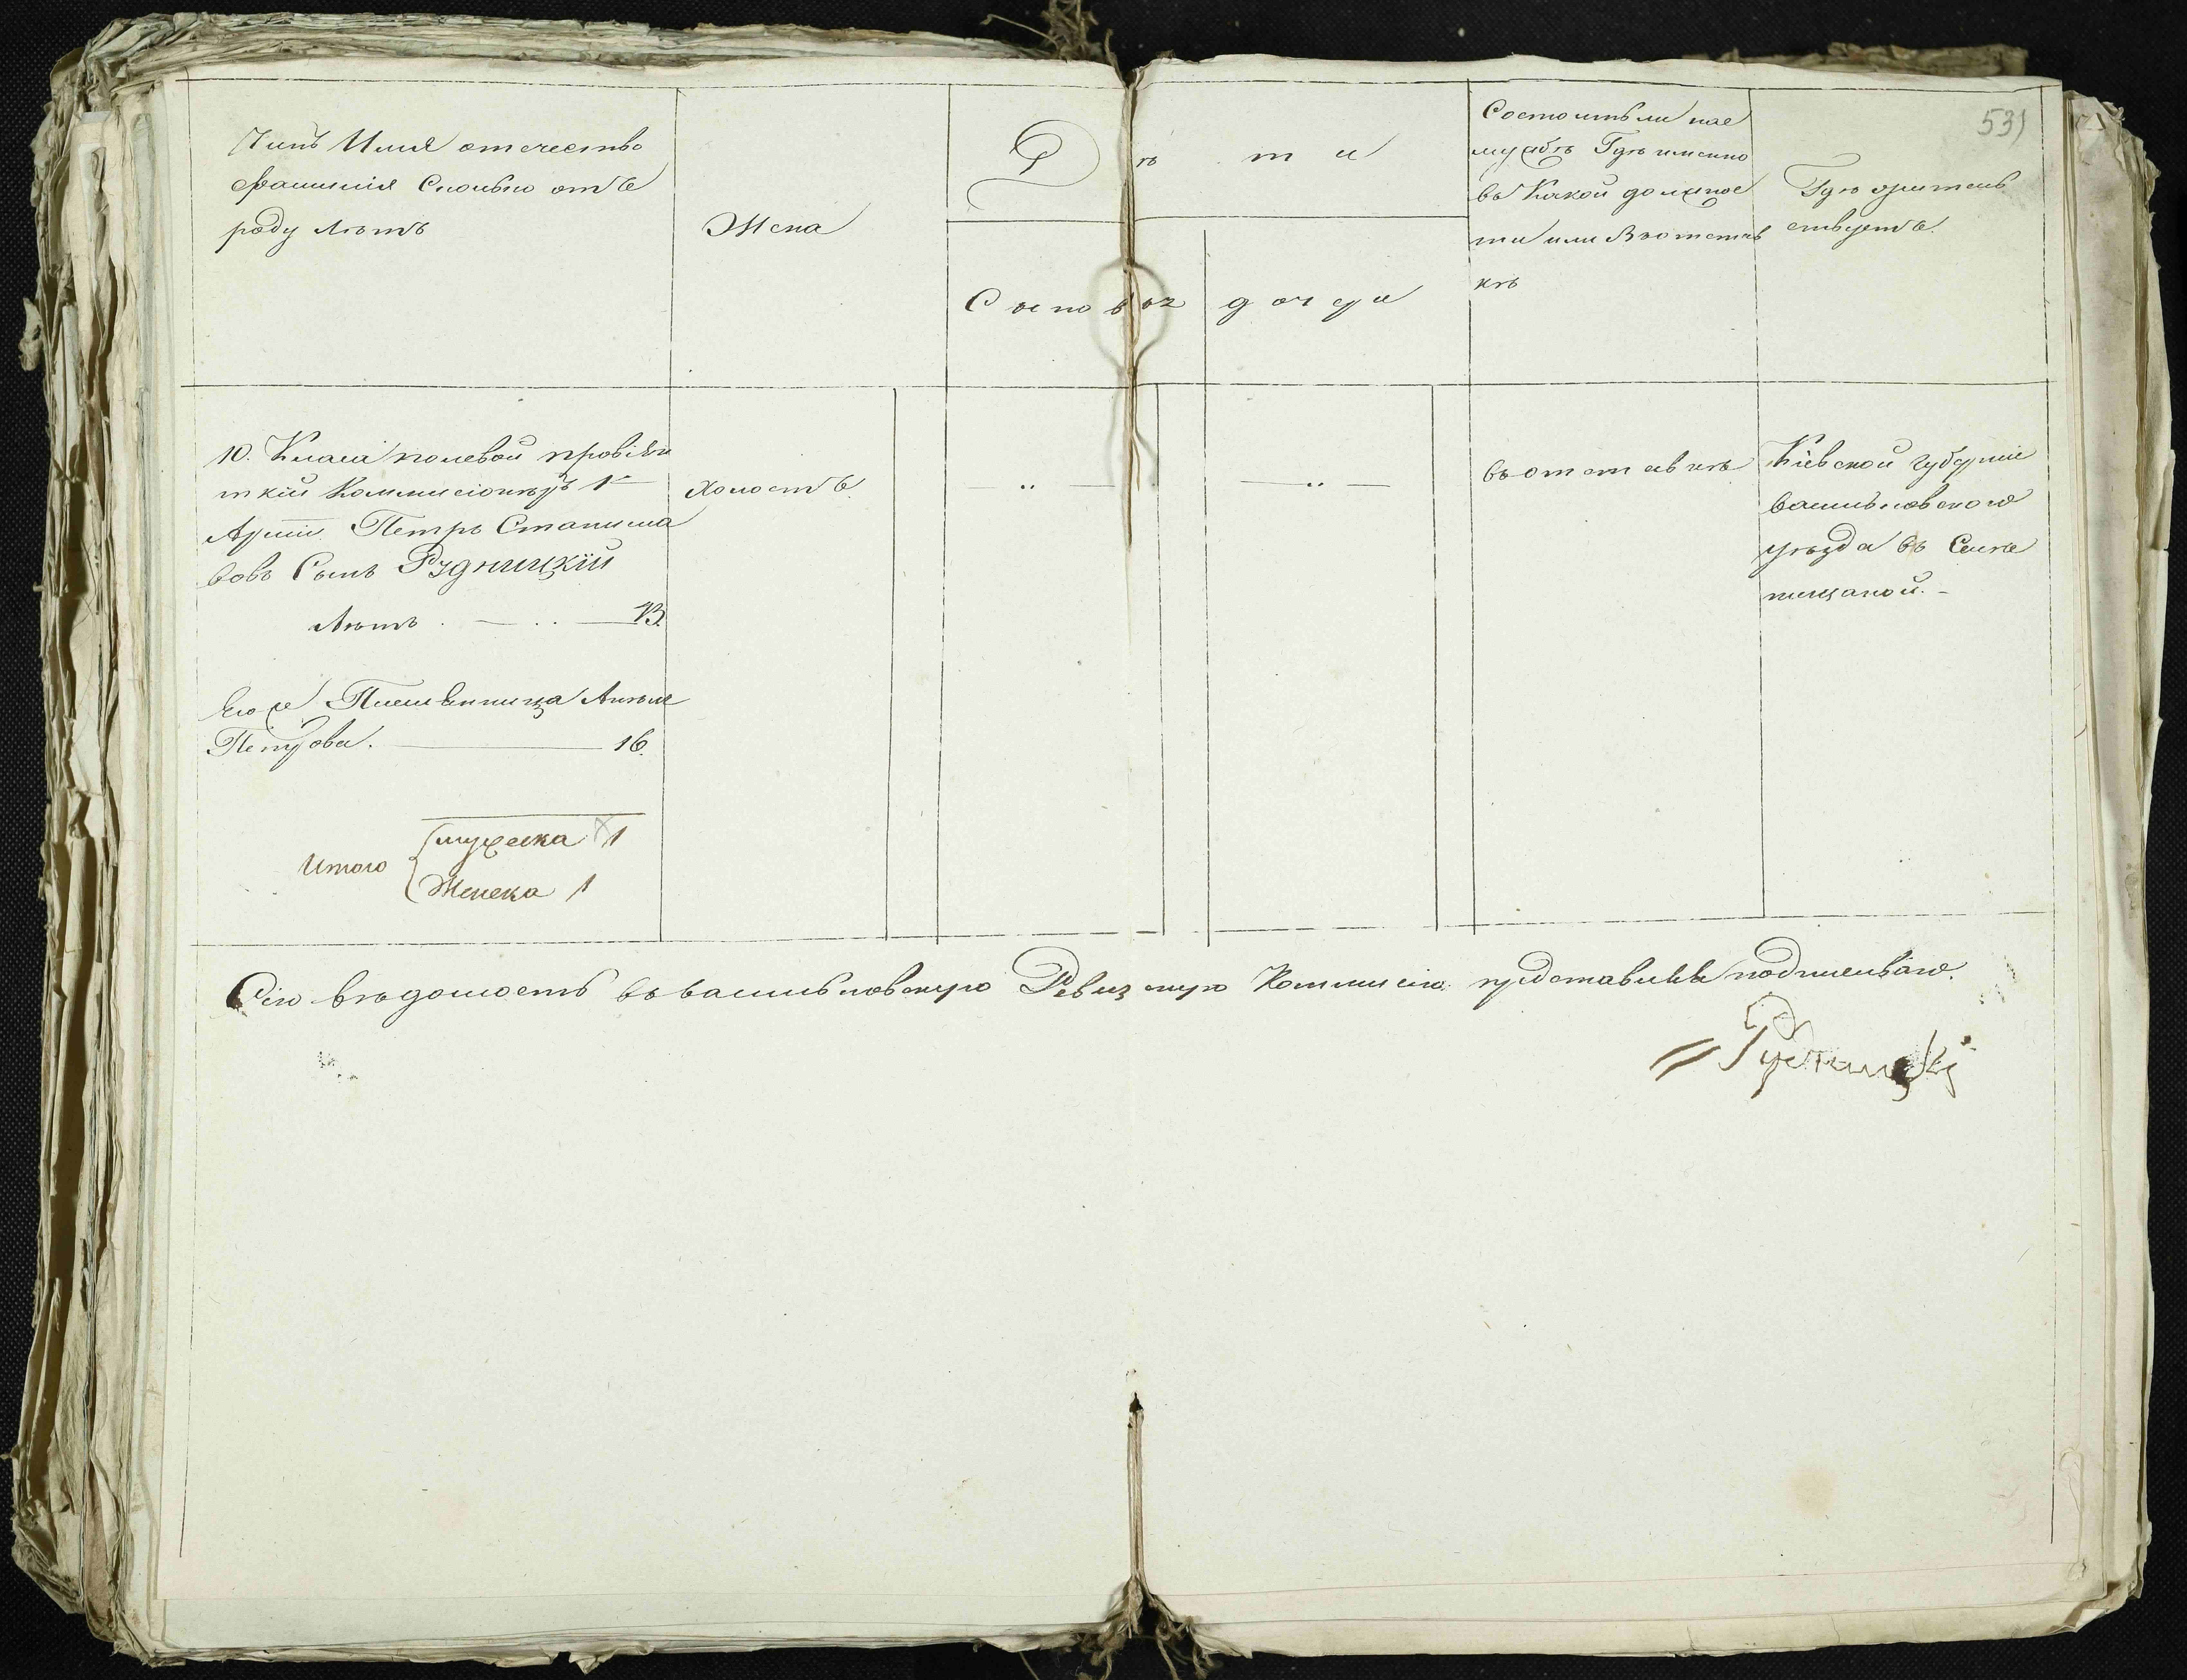 531
Чинъ Имя отечество
фамилія Сколько отъ
роду лѣтъ
Жена
Дѣти
Сыновья
дочери
Состоитъ ли на с
лужбѣ Гдѣ имянно
въ Какой должнос
ти или въ отстав
кѣ
Гдѣ жителъ
ствуетъ.
10. Класа полевой провіян
тскій Коммисіонеръ 1й
Арміи Петръ Станисла
вовъ Сынъ Рудницкій
Лѣтъ
Его же Племянница
Петрова. 16.
Итого
мужеска 1
Женска 1
холостъ.
въ отставкѣ
Кіевской губерніи
васильковского
уѣзда въ Селѣ
пищаной.
Сію вѣдомость въ васильковскую Ревизскую Коммисію представилъ подписываю.
Рудницкi